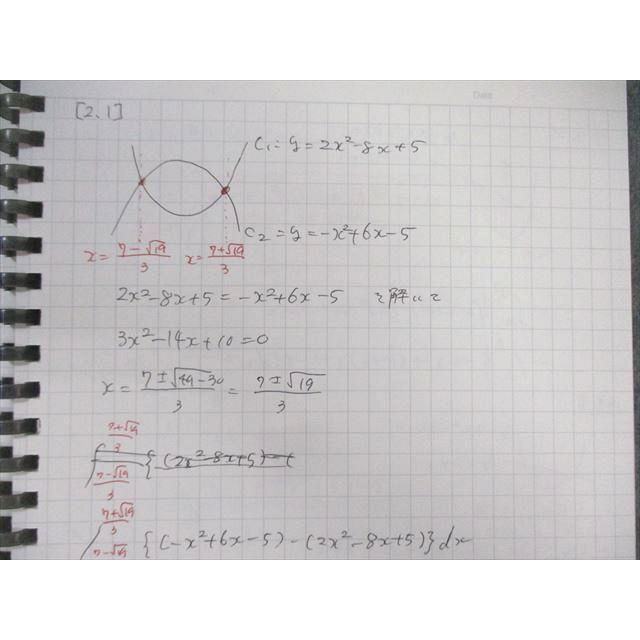 Date
[2、1]
C₁: y = 2x²-8x+5
C₂: y = -x²+6x-5
x = (7-√19)/3 x = (7+√19)/3
2x²-8x+5 = -x²+6x-5 を解いて
3x²-14x+10=0
x = (7±√(49-30))/3 = (7±√19)/3
∫_{(7-√19)/3}^{(7+√19)/3} {(2x²-8x+5)-(
∫_{7-√19}^{(7+√19)/3} {(-x²+6x-5)-(2x²-8x+5)}dx